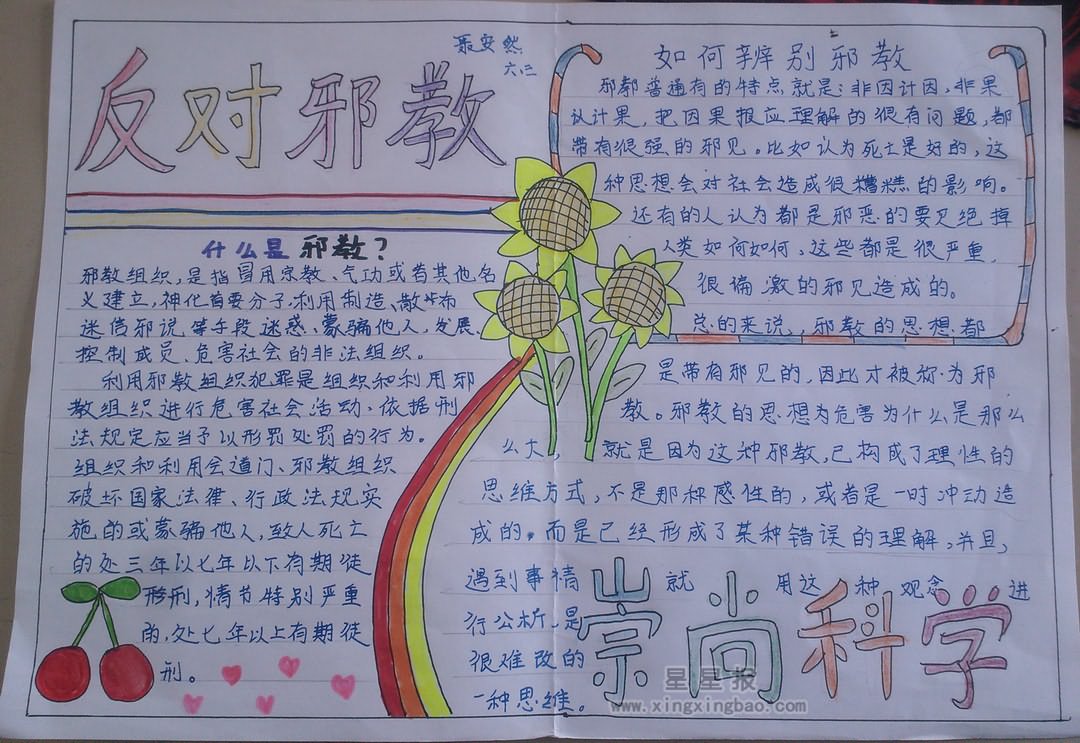 反对邪教
聂安然
六.二
什么是邪教？
邪教组织，是指冒用宗教、气功或者其他名
义建立，神化首要分子.利用制造、散布
迷信邪说，等手段迷惑、蒙骗他人，发展、
控制成员、危害社会的非法组织。
利用邪教组织犯罪是组织和利用邪
教组织进行危害社会活动、依据刑
法规定应当予以形罚处罚的行为。
组织和利用会道门、邪教组织
破坏国家法律、行政法规实
施的或蒙骗他人，致人死亡
的处三年以七年以下有期徒
形刑，情节特别严重
的，处七年以上有期徒
刑。
如何辨别邪教
邪教普遍有的特点就是：非因计因，非果
认计果，把因果报应理解的很有问题，都
带有很强的邪见。比如认为死士是好的，这
种思想会对社会造成很糟糕的影响。
还有的人认为都是邪恶的要见绝掉
人类如何如何，这些都是很严重，
很偏激的邪见造成的。
总的来说，，邪教的思想都
是带有邪见的，因此才被称为邪
教。邪教的思想为危害为什么是那么
么大，就是因为这种邪教，已构成了理性的
思维方式，不是那种感性的，或者是一时冲动造
成的。而是已经形成了某种错误的理解，并且，
遇到事情就用这种观念进
行公析，是
很难改的
一种思维。
崇尚科学
星星报
www.xingxingbao.com